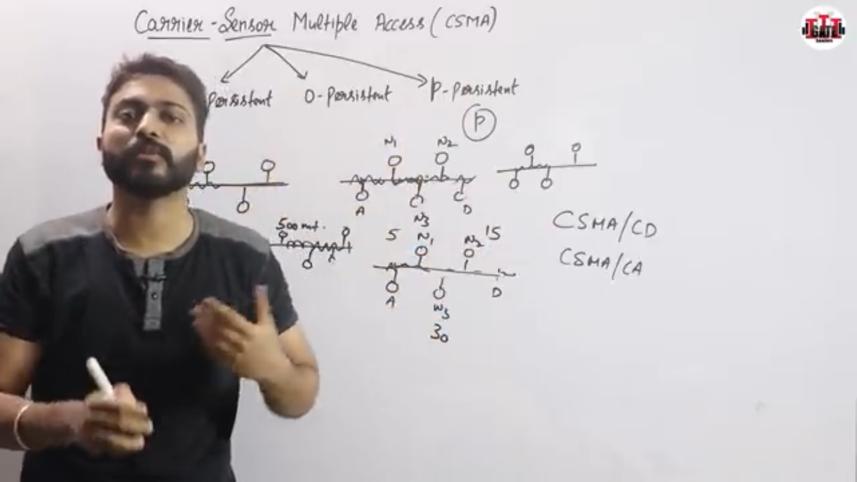 Carrier-Sensor Multiple Access (CSMA)
Persistent O-Persistent P-Persistent
P
N1 N2
A C D
N3
500mt.
5 N1 N2 15
A N3 D
30
CSMA/CD
CSMA/CA
GATE